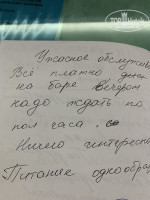 TOP
Ужасное обслужив
Всё платно даже
на баре вечером
надо ждать по
пол часа.
Ничего интересно
Питание однообра